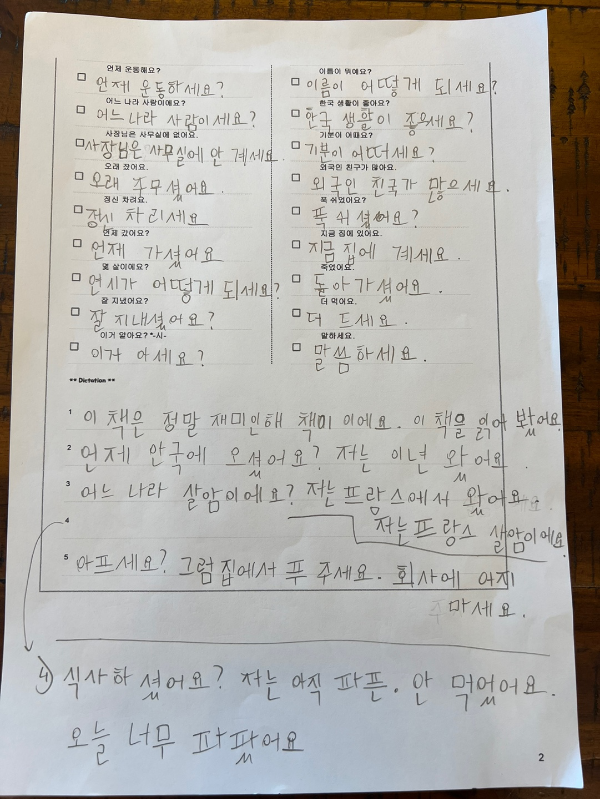 언제 운동해요?
언제 운동하세요?
어느 나라 사람이에요?
어느 나라 사람이세요?
사장님은 사무실에 없어요.
사장님은 사무실에 안 계세요.
오래 잤어요.
오래 주무셨어요.
정신 차려요.
정시 차리세요
언제 갔어요?
언제 가셨어요
몇 살이에요?
연시가 어떻게 되세요?
잘 지냈어요?
잘 지내셨어요?
이거 알아요? *-시-
이거 아세요?
이름이 뭐예요?
이름이 어떻게 되세요?
한국 생활이 좋아요?
한국 생활이 좋으세요?
기분이 어때요?
기분이 어떠세요?
외국인 친구가 많아요.
외국인 친국가 많으세요.
푹 쉬었어요?
푹 쉬셨어요?
지금 집에 있어요.
지금 집에 계세요.
죽었어요.
돌아가셨어요.
더 먹어요.
더 드세요.
말하세요.
말씀하세요.
** Dictation **
1 이 책은 정말 재미인해 책이 이에요. 이 책을 읽어 봤어요.
2 언제 안국에 오셨어요? 저는 이년 왔어요.
3 어느 나라 살암이에요? 저는 프랑스에서 왔어요.
저는 프랑스 살암이에요.
4
5 아프세요? 그럼 집에서 푸 주세요. 회사에 아지
주마세요.
4) 식사하셨어요? 저는 아직 파픈. 안 먹었어요.
오늘 너무 파팠어요
2